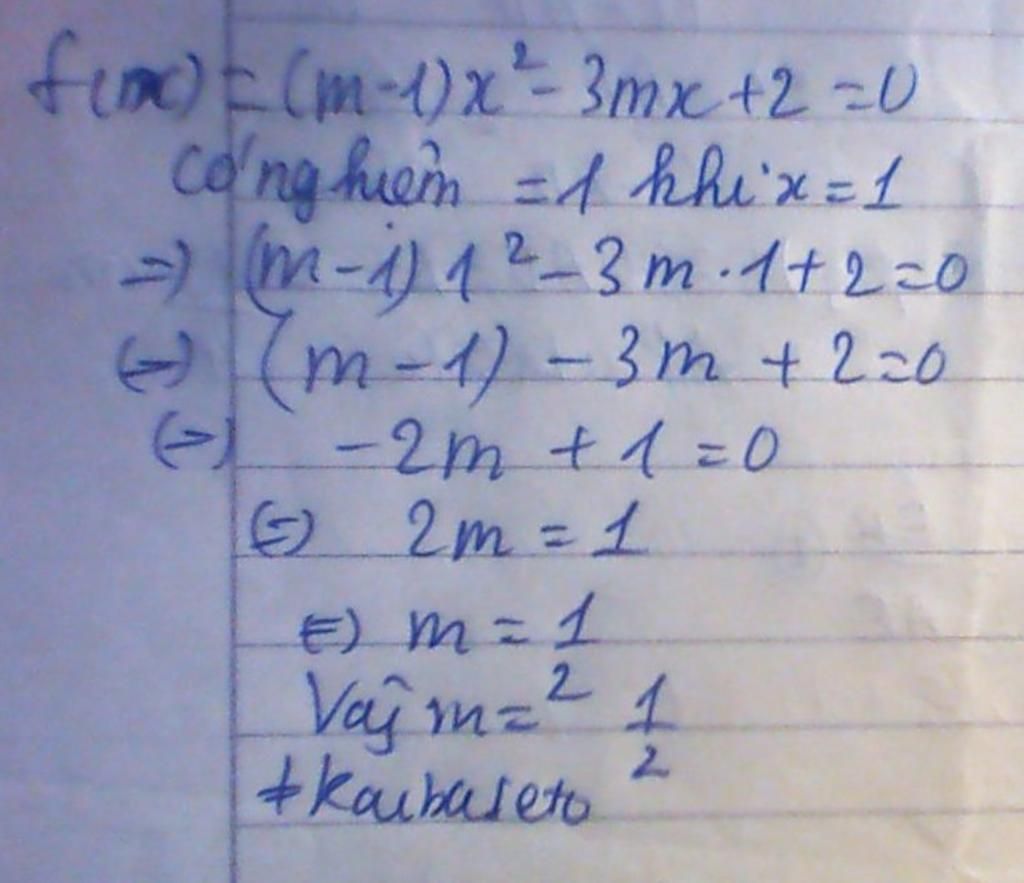 f(x) = (m-1)x² - 3mx + 2 = 0
có nghiệm = 1 khi x = 1
=> (m-1) 1² - 3m . 1 + 2 = 0
<=> (m-1) - 3m + 2 = 0
<=> -2m + 1 = 0
<=> 2m = 1
<=> m = 1/2
Vậy m = 1/2
+Kaibaseto